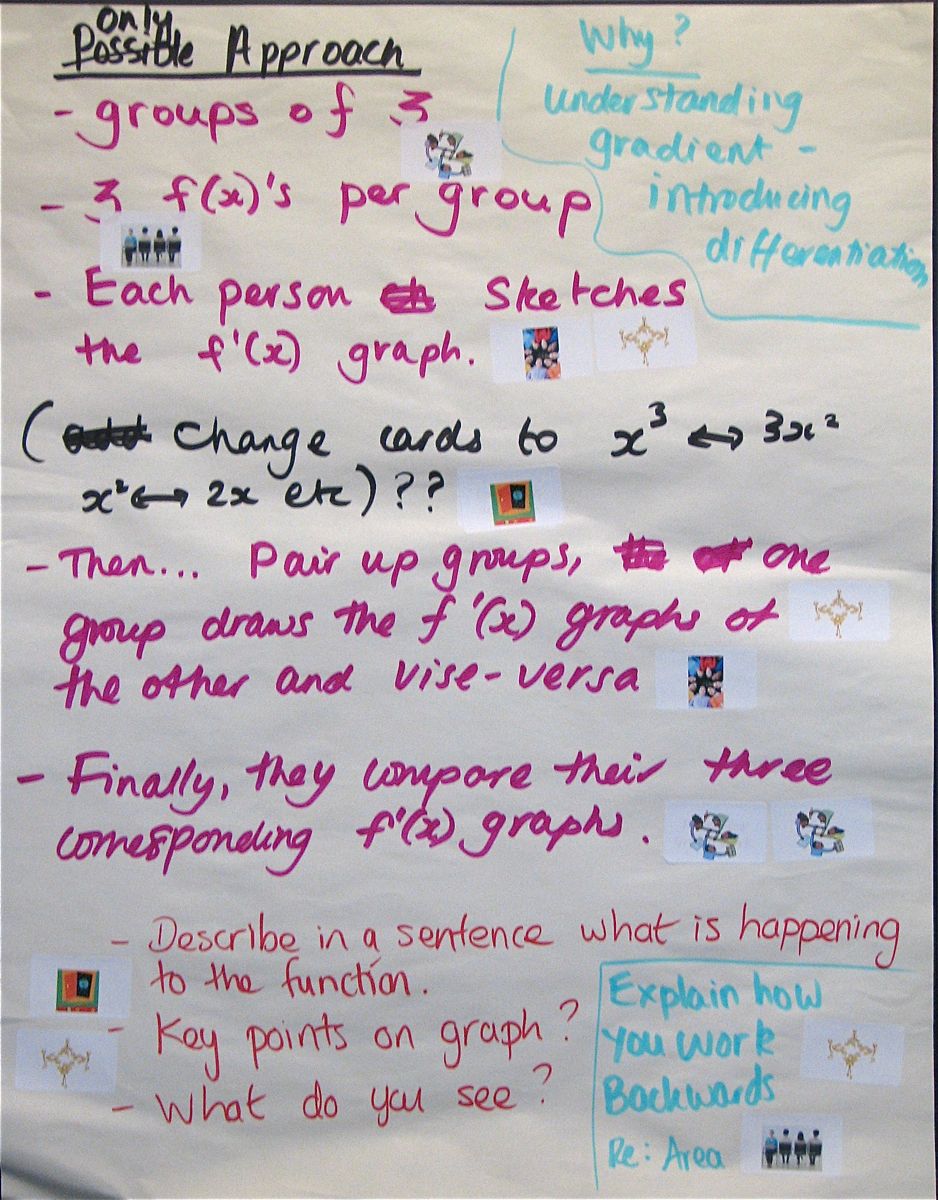 only
Possible Approach
- groups of 3
- 3 f(x)'s per group
- Each person sketches
the f'(x) graph.
Why?
understanding
gradient -
introducing
differentiation
( change cards to x³ ↔ 3x²
x² ↔ 2x etc) ??
- Then... Pair up groups, one
group draws the f'(x) graphs of
the other and vise-versa
- Finally, they compare their three
corresponding f'(x) graphs.
- Describe in a sentence what is happening
to the function.
- Key points on graph?
- What do you see?
Explain how
you work
Backwards
Re: Area